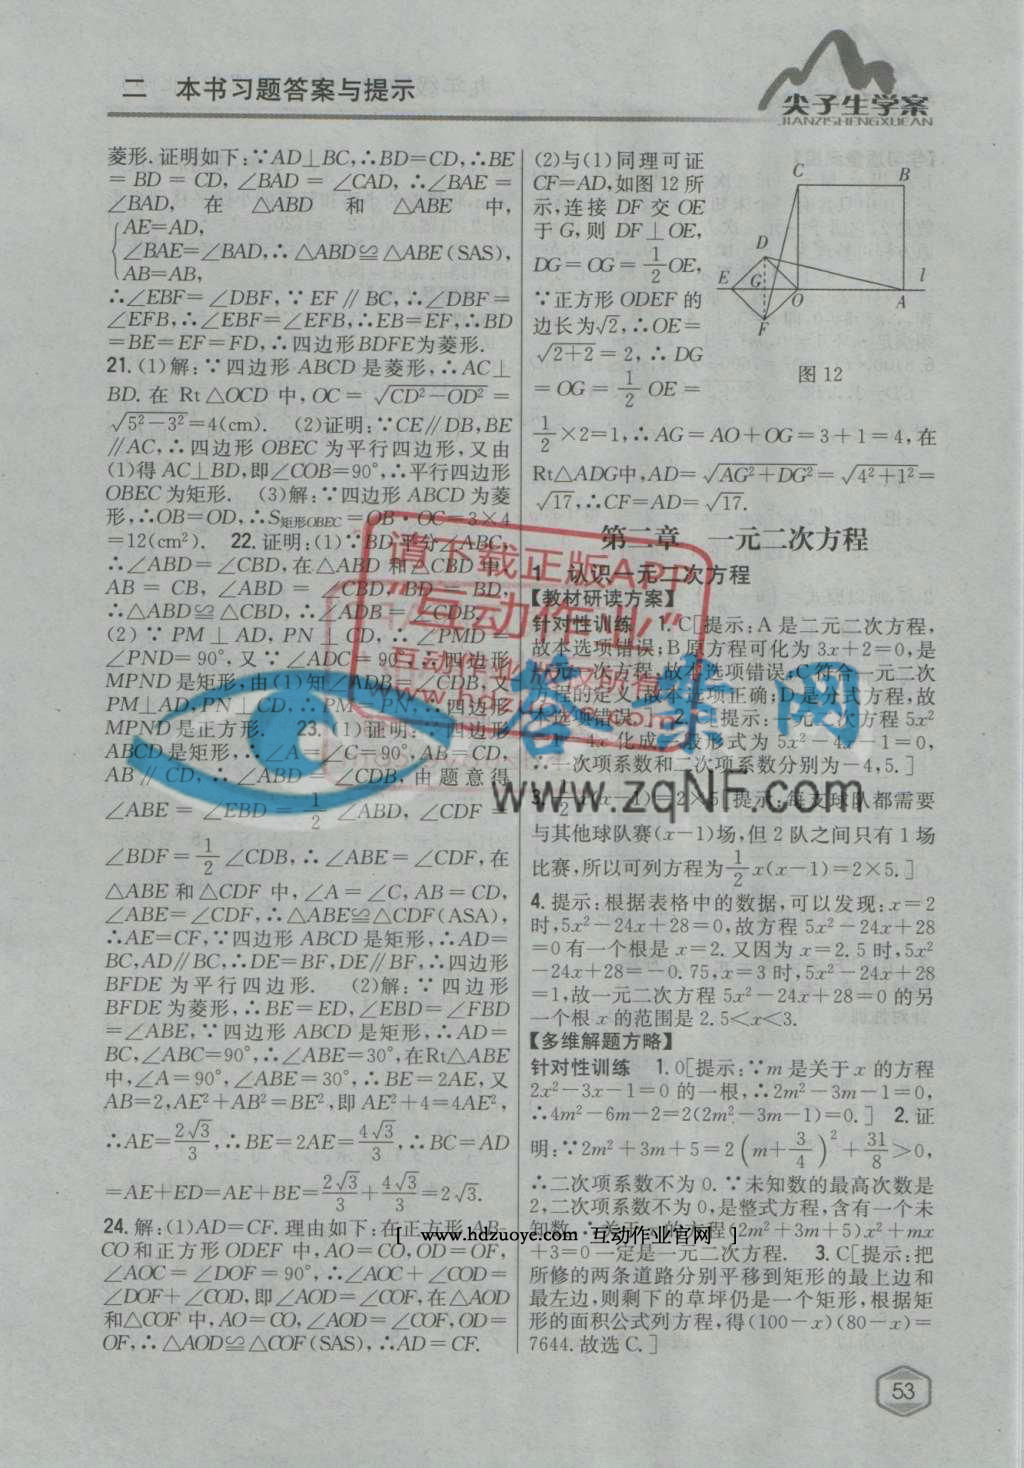 二 本书习题答案与提示
尖子生学案
JIANZISHENGXUEAN
菱形.证明如下:∵AD⊥BC,∴BD=CD,∴BE
=BD=CD,∠BAD=∠CAD,∴∠BAE=
∠BAD,在△ABD和△ABE中,
AE=AD,
∠BAE=∠BAD,∴△ABD≌△ABE(SAS),
AB=AB,
∴∠EBF=∠DBF,∵EF∥BC,∴∠DBF=
∠EFB,∴∠EBF=∠EFB,∴EB=EF,∴BD
=BE=EF=FD,∴四边形BDFE为菱形.
21.(1)解:∵四边形ABCD是菱形,∴AC⊥
BD.在Rt△OCD中,OC=√(CD²-OD²)=
√(5²-3²)=4(cm). (2)证明:∵CE∥DB,BE
∥AC,∴四边形OBEC为平行四边形,又由
(1)得AC⊥BD,即∠COB=90°,∴平行四边形
OBEC为矩形. (3)解:∵四边形ABCD为菱
形,∴OB=OD,∴S矩形OBEC=OB·OC=3×4
=12(cm²). 22.证明:(1)∵BD平分∠ABC,
∴∠ABD=∠CBD,在△ABD和△CBD中,
AB=CB,∠ABD=∠CBD,BD=BD,
∴△ABD≌△CBD,∴∠ADB=∠CDB.
(2)∵PM⊥AD,PN⊥CD,∴∠PMD=
∠PND=90°,又∵∠ADC=90°,∴四边形
MPND是矩形,由(1)知∠ADB=∠CDB,又
PM⊥AD,PN⊥CD,∴PM=PN,∴四边形
MPND是正方形. 23.(1)证明:∵四边形
ABCD是矩形,∴∠A=∠C=90°,AB=CD,
AB∥CD,∴∠ABD=∠CDB,由题意得
∠ABE=∠EBD=1/2∠ABD,∠CDF=
∠BDF=1/2∠CDB,∴∠ABE=∠CDF,在
△ABE和△CDF中,∠A=∠C,AB=CD,
∠ABE=∠CDF,∴△ABE≌△CDF(ASA),
∴AE=CF,∵四边形ABCD是矩形,∴AD=
BC,AD∥BC,∴DE=BF,DE∥BF,∴四边形
BFDE为平行四边形. (2)解:∵四边形
BFDE为菱形,∴BE=ED,∠EBD=∠FBD
=∠ABE,∵四边形ABCD是矩形,∴AD=
BC,∠ABC=90°,∴∠ABE=30°,在Rt△ABE
中,∠A=90°,∠ABE=30°,∴BE=2AE,又
AB=2,AE²+AB²=BE²,即AE²+4=4AE²,
∴AE=2√3/3,∴BE=2AE=4√3/3,∴BC=AD
=AE+ED=AE+BE=2√3/3+4√3/3=2√3.
24.解:(1)AD=CF.理由如下:在正方形AB-
CO和正方形ODEF中,AO=CO,OD=OF,
∠AOC=∠DOF=90°,∴∠AOC+∠COD=
∠DOF+∠COD,即∠AOD=∠COF,在△AOD
和△COF中,AO=CO,∠AOD=∠COF,OD=
OF,∴△AOD≌△COF(SAS),∴AD=CF.
(2)与(1)同理可证
CF=AD,如图12所
示,连接DF交OE
于G,则DF⊥OE,
DG=OG=1/2OE,
∵正方形ODEF的
边长为√2,∴OE=
√(2+2)=2,∴DG
=OG=1/2OE=
C B D E G O A l F
图12
1/2×2=1,∴AG=AO+OG=3+1=4,在
Rt△ADG中,AD=√(AG²+DG²)=√(4²+1²)=
√17,∴CF=AD=√17.
第二章 一元二次方程
1 认识一元二次方程
【教材研读方案】
针对性训练 1.C[提示:A是二元二次方程,
故本选项错误;B原方程可化为3x+2=0,是
一元一次方程,故本选项错误;C符合一元二次
方程的定义,故本选项正确;D是分式方程,故
本选项错误.] 2. [提示:一元二次方程5x²
4x化成一般形式为5x²-4x-1=0,
∴一次项系数和二次项系数分别为-4,5.]
3. 1/2x(x-1)=2×5[提示:每支球队都需要
与其他球队赛(x-1)场,但2队之间只有1场
比赛,所以可列方程为1/2x(x-1)=2×5.]
4.提示:根据表格中的数据,可以发现:x=2
时,5x²-24x+28=0,故方程5x²-24x+28
=0有一个根是x=2.又因为x=2.5时,5x²
-24x+28=-0.75,x=3时,5x²-24x+28
=1,故一元二次方程5x²-24x+28=0的另
一个根x的范围是2.5<x<3.
【多维解题方略】
针对性训练 1.0[提示:∵m是关于x的方程
2x²-3x-1=0的一根,∴2m²-3m-1=0,
∴4m²-6m-2=2(2m²-3m-1)=0.] 2.证
明:∵2m²+3m+5=2(m+3/4)²+31/8>0,
∴二次项系数不为0.∵未知数的最高次数是
2,二次项系数不为0,是整式方程,含有一个未
知数,∴关于x的方程(2m²+3m+5)x²+mx
+3=0一定是一元二次方程. 3.C[提示:把
所修的两条道路分别平移到矩形的最上边和
最左边,则剩下的草坪仍是一个矩形,根据矩
形的面积公式列方程,得(100-x)(80-x)=
7644.故选C.]
请下载正版APP
"互动作业"
答案网
www.zqNF.com
[ www.hdzuoye.com 互动作业官网 ]
53